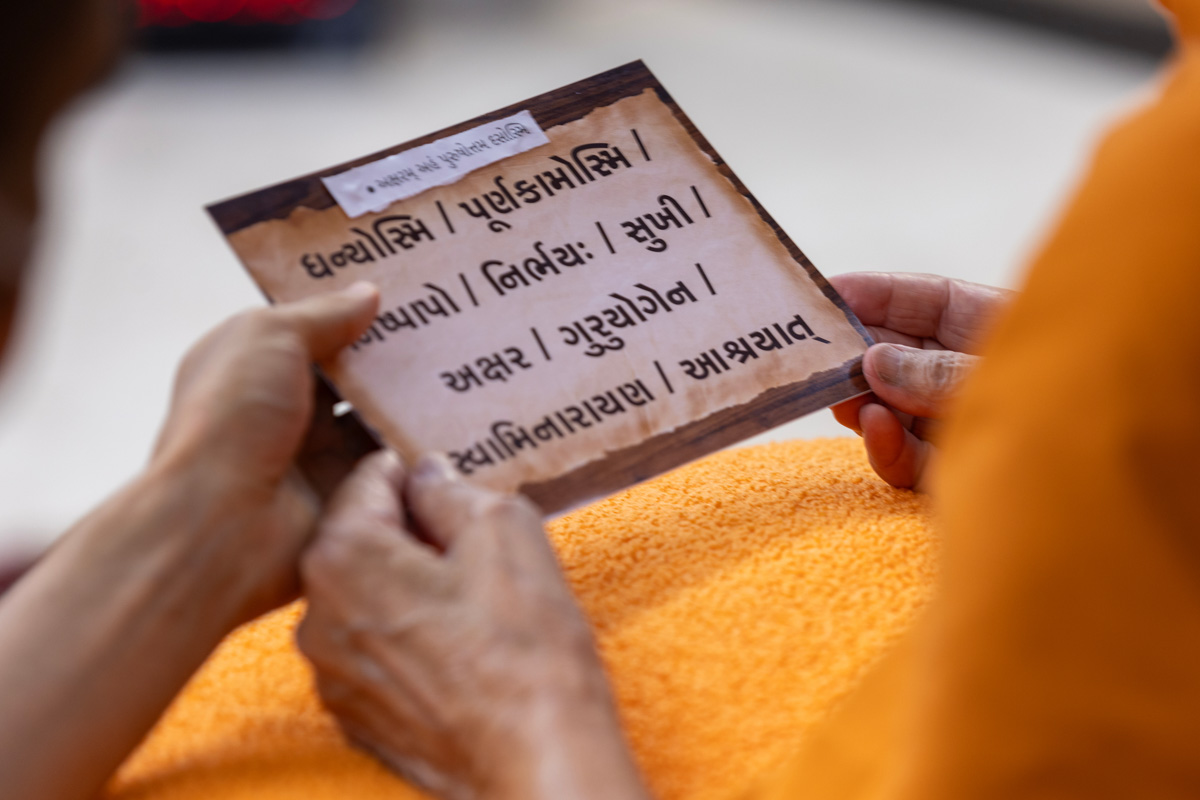 • અક્ષરમ્ અહં પુરુષોત્તમ દાસોસ્મિ
ધન્યોસ્મિ / પૂર્ણકામોસ્મિ /
નિષ્પાપો / નિર્ભયઃ / સુખી /
અક્ષર / ગુરુયોગેન /
સ્વામિનારાયણ / આશ્રયાત્